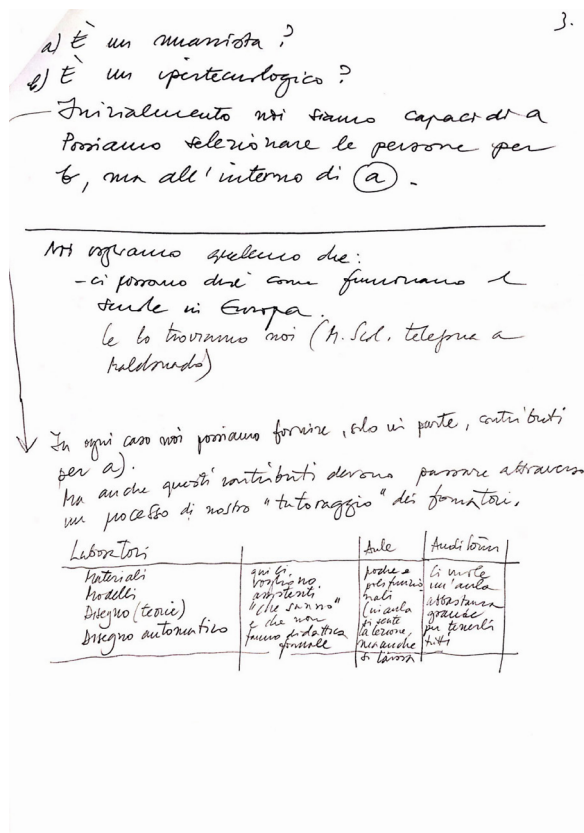 3.
a) È un umanista?
b) È un ipertecnologico?
Inizialmente noi siamo capaci di a
Possiamo selezionare le persone per
b, ma all'interno di a.
Noi vogliamo qualcuno che:
- ci possano dire come funzionano le
scuole in Europa.
Ce lo troviamo noi (M. Scol. telefona a
Maldonado)
In ogni caso noi possiamo fornire, solo in parte, contributi
per a).
Ma anche questi contributi devono passare attraverso
un processo di nostro "tutoraggio" dei formatori.
Laboratori
Materiali
Modelli
Disegno (teorie)
Disegno automatico
qui ci
vogliono
assistenti
"che sanno"
e che non
fanno didattica
formale
Aule
poche e
polifunzio
nali
(in aula
si sente
la lezione,
ma anche
si lavora
Auditorium
Ci vuole
un'aula
abbastanza
grande
per tenerli
tutti